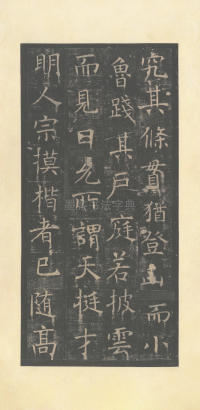 究其條貫猶登山而小
魯踐其戶庭若披雲
而見日所謂天挺才
明人宗摸楷者已隨高